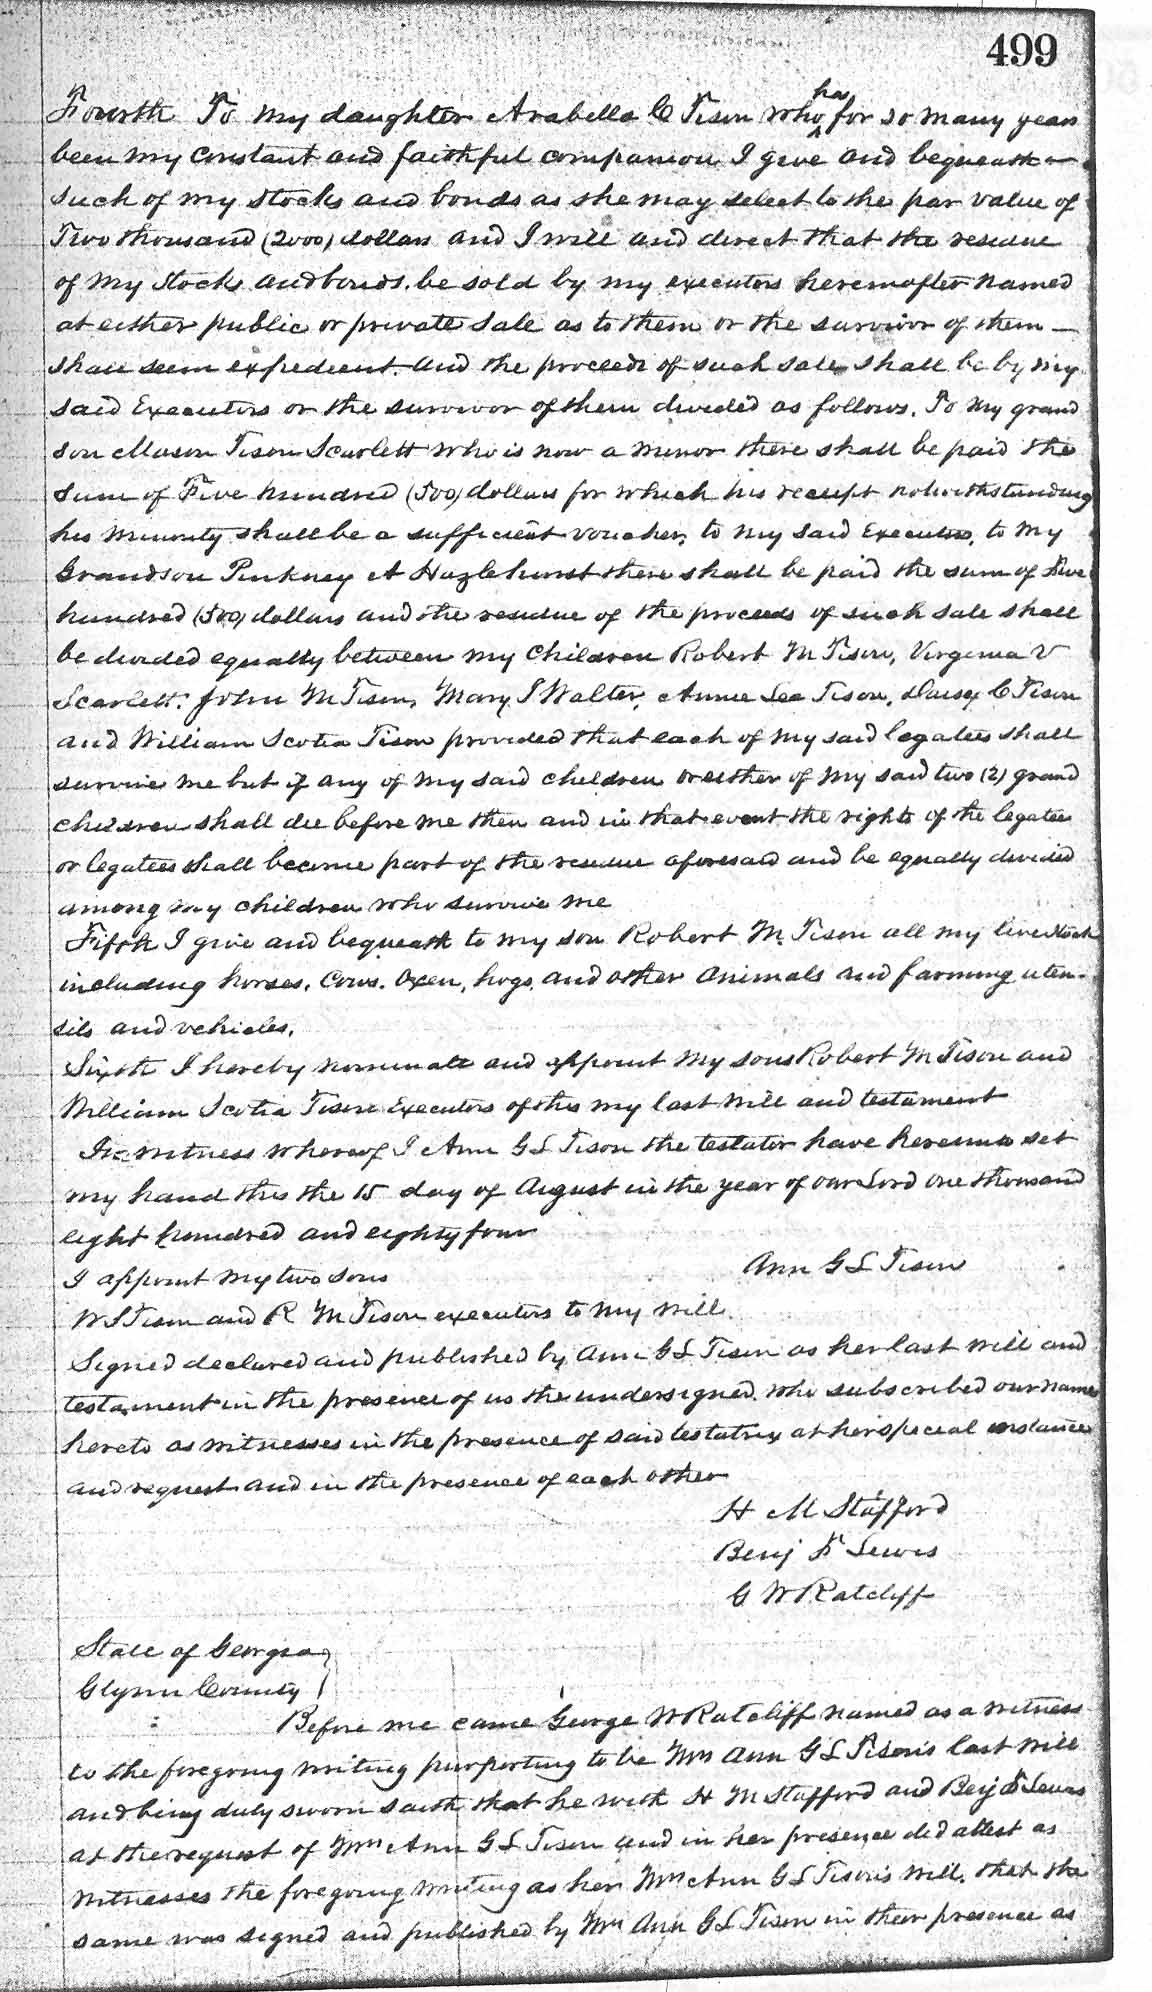 499
Fourth To my daughter Arabella C Tison who has for so many years
been my constant and faithful companion I give and bequeath
such of my stocks and bonds as she may select to the par value of
Two thousand (2000) dollars and I will and direct that the residue
of my stocks and bonds. be sold by my executors hereinafter named
at either public or private sale as to them or the survivor of them —
shall seem expedient. and the proceeds of such sale shall be by my
said Executors or the survivor of them divided as follows. To my grand
son Mason Tison Scarlett who is now a minor there shall be paid the
sum of Five hundred (500) dollars for which his receipt notwithstanding
his minority shall be a sufficient voucher, to my said Executors, to my
Grandson Pinkney A Hazlehurst there shall be paid the sum of Five
hundred (500) dollars and the residue of the proceeds of such sale shall
be divided equally between my children Robert M Tison, Virginia V
Scarlett. John M Tison, Mary J Walter, Annie Lee Tison, Daisy C Tison
and William Scotia Tison provided that each of my said legatees shall
survive me but if any of my said children or either of my said two (2) grand
children shall die before me then and in that event the rights of the legatee
or legatees shall become part of the residue aforesaid and be equally divided
among my children who survive me
Fifth I give and bequeath to my son Robert M. Tison all my live stock
including horses. Cows. Oxen, hogs, and other animals and farming uten-
sils and vehicles.
Sixth I hereby nominate and appoint my sons Robert M Tison and
William Scotia Tison Executors of this my last will and testament
In witness whereof I Ann G L Tison the testator have hereunto set
my hand this the 15 day of August in the year of our Lord one thousand
eight hundred and eighty four
Ann G L Tison
I appoint my two sons
W S Tison and R M Tison executors to my will.
Signed declared and published by Ann G L Tison as her last will and
testament in the presence of us the undersigned. who subscribed our names
hereto as witnesses in the presence of said testatrix at her special instance
and request and in the presence of each other
H M Stafford
Benj F Lewis
G W Ratcliff
State of Georgia
Glynn County
Before me came George W Ratcliff named as a witness
to the foregoing writing purporting to be Mrs Ann G L Tison's last will
and being duly sworn saith that he with H M Stafford and Benj F Lewis
at the request of Mrs Ann G L Tison and in her presence did attest as
witnesses the foregoing writing as her Mrs Ann G L Tison's will. that the
same was signed and published by Mrs Ann G L Tison in their presence as